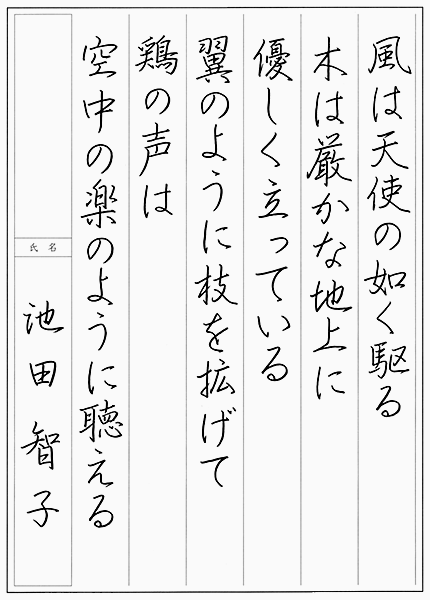 風は天使の如く駆る
木は厳かな地上に
優しく立っている
翼のように枝を拡げて
鶏の声は
空中の楽のように聴える
氏名
池田智子